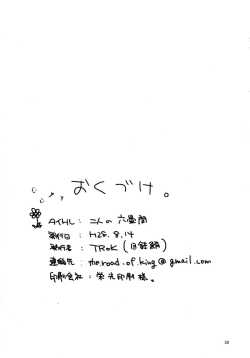 おくづけ。
タイトル：二人の六畳間
発行日：H28.8.14
発行者：TRoK（目鉄鋼）
連絡先：the.road.of.king@gmail.com
印刷会社：栄光印刷様。